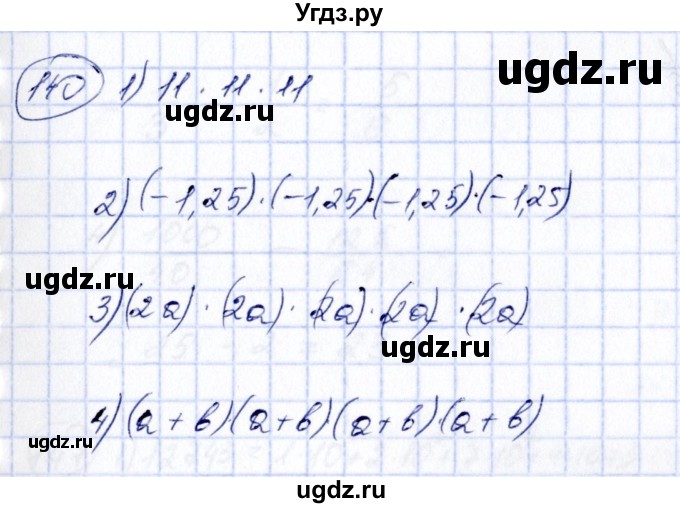 Угдз.ру
ugdz.ru
140 1) 11 · 11 · 11
ugdz.ru
2) (-1,25)·(-1,25)·(-1,25)·(-1,25)
ugdz.ru
3) (2a) · (2a) · (2a) · (2a) · (2a)
ugdz.ru
4) (a + b)(a + b)(a + b)·(a + b)
ugdz.ru
ugdz.ru
ugdz.ru